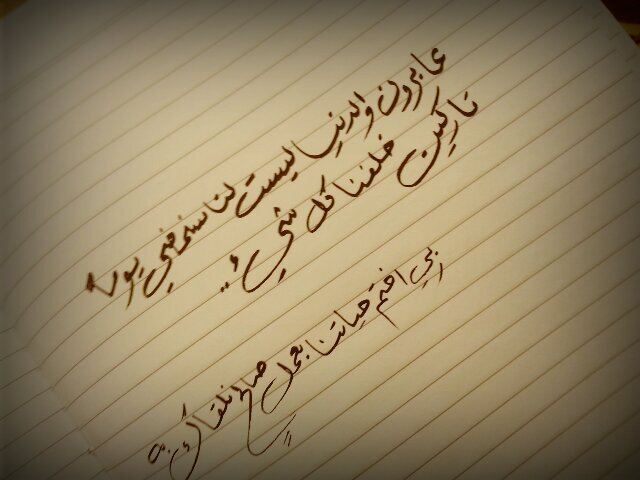 عابرون والدنيا ليست لنا سنمضي يوما
تاركين خلفنا كل شيء ..
ربي اختم حياتنا بعمل صالح نلقاك به